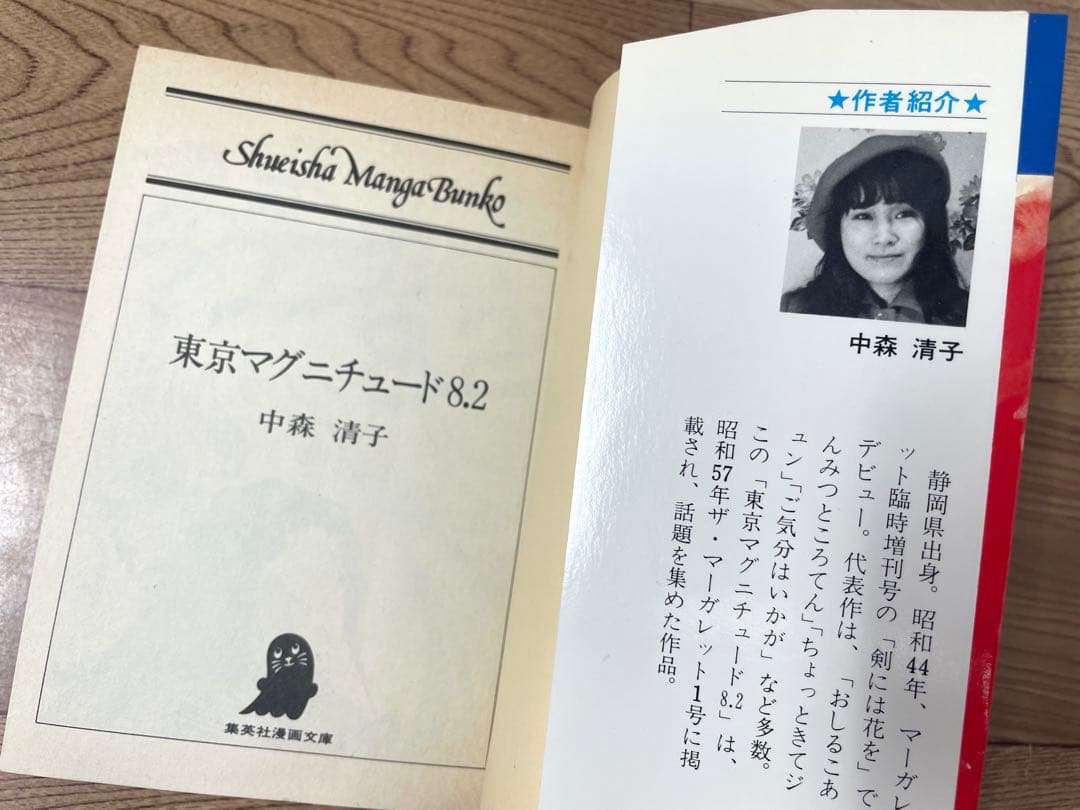 Shueisha Manga Bunko
東京マグニチュード8.2
中森 清子
集英社漫画文庫
★作者紹介★
中森 清子
静岡県出身。昭和44年、マーガレ
ット臨時増刊号の「剣には花を」で
デビュー。代表作は、「おしるこあ
んみつところてん」「ちょっときてジ
ュン」「ご気分はいかが」など多数。
この「東京マグニチュード8.2」は、
昭和57年ザ・マーガレット1号に掲
載され、話題を集めた作品。